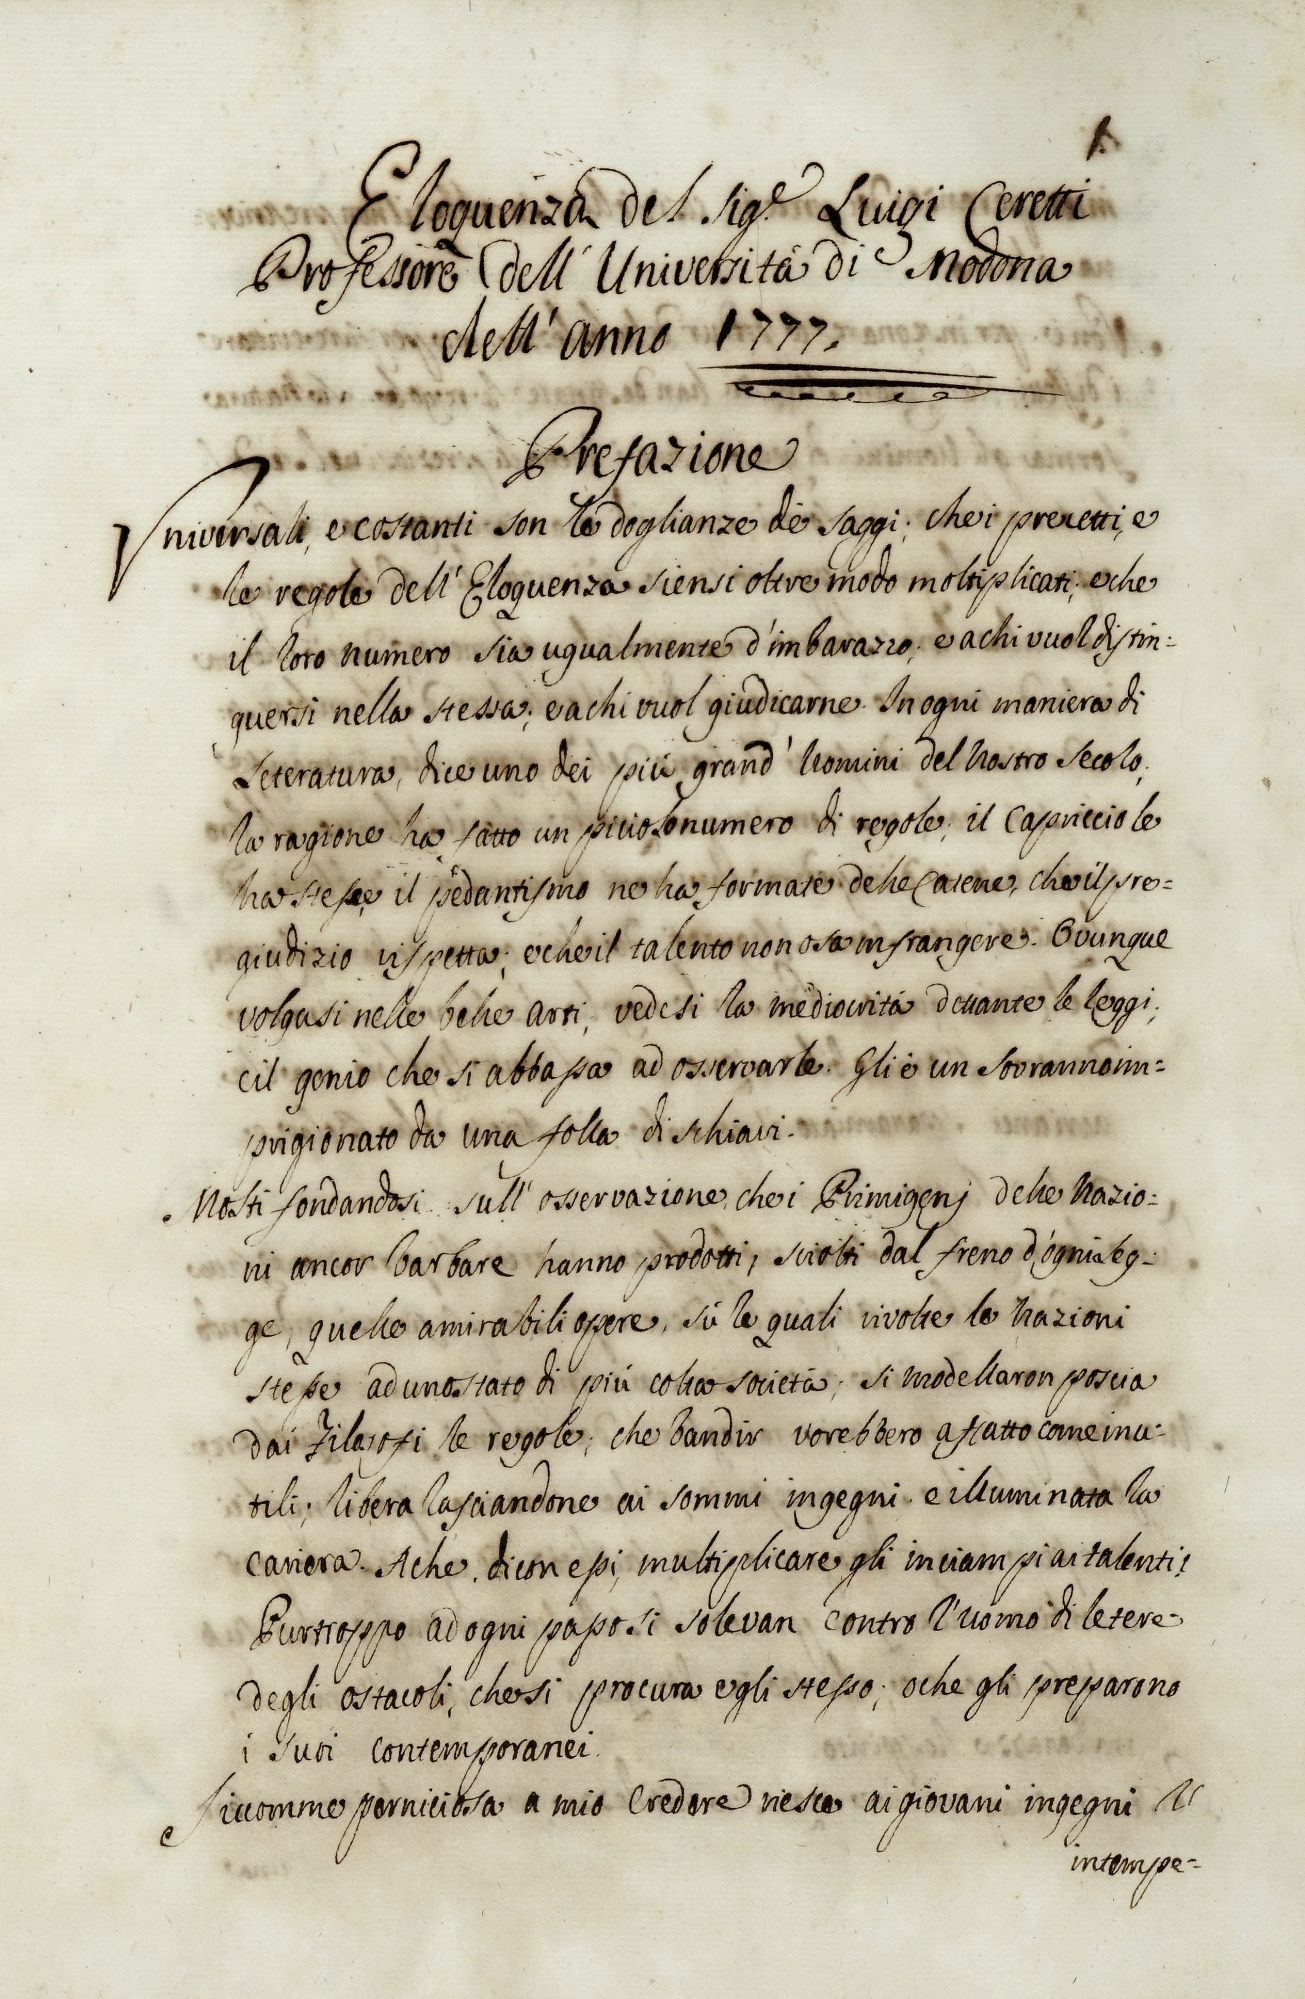 1.
Eloquenza del Sig.e Luigi Ceretti
Professore dell' Università di Modona
dell' anno 1777.
Prefazione
Universali, e costanti son le doglianze de saggi; che i precetti, e
le regole dell' Eloquenza siensi oltre modo moltiplicati; e che
il loro numero sia ugualmente d'imbarazzo; e a chi vuol distin=
guersi nella stessa; e a chi vuol giudicarne. In ogni maniera di
Leteratura, dice uno dei più grand' Uomini del Nostro Secolo,
la ragione ha fatto un piciolo numero di regole; il Capriccio le
ha stese, il pedantismo ne ha formate delle Catene, che il pre=
giudizio rispetta; e che il talento non osa infrangere. Ovunque
volgasi nelle belle Arti, vedesi la mediocrità dettante le leggi;
e il genio che si abbassa ad osservarle. Gli è un Sovranno im=
prigionato da una folla di schiavi.
Molti fondandosi sull' osservazione, che i Primigenj delle Nazio=
ni ancor barbare hanno prodotti, sciolti dal freno d'ogni leg=
ge, quelle amirabili opere, sù le quali rivolte le Nazioni
stesse ad uno stato di più colta società; si modellaron poscia
dai Filosofi le regole; che bandir vorebbero affatto come inu=
tili; libera lasciandone ai sommi ingegni e illuminata la
Cariera. A che, dicon essi, multiplicare gli inciampi ai talenti;
Purtroppo ad ogni passo si solevan contro l'uomo di letere
degli ostacoli, che si procura egli stesso; o che gli preparono
i suoi contemporanei.
Siccomme perniciosa a mio Credere riesce ai giovani ingegni l'
intempe=